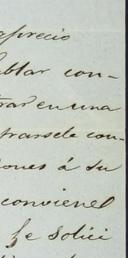 aprecio
ablar con-
trar en una
trarsele con-
ciones á su
conviene l
Se solici